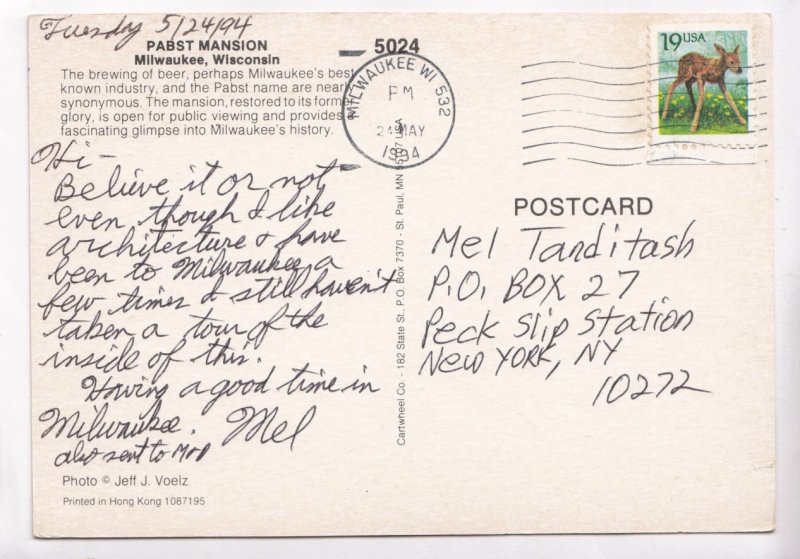 Tuesday 5/24/94
PABST MANSION
Milwaukee, Wisconsin
The brewing of beer, perhaps Milwaukee's best
known industry, and the Pabst name are near
synonymous. The mansion, restored to its form
glory, is open for public viewing and provides
fascinating glimpse into Milwaukee's history.
5024
MILWAUKEE WI 532
PM
24 MAY
1994
19 USA
Hi -
Believe it or not
even though I like
architecture & have
been to Milwaukee a
few times I still haven't
taken a tour of the
inside of this.
Having a good time in
Milwaukee. Mel
also sent to MOD
Photo © Jeff J. Voelz
Printed in Hong Kong 1087195
Cartwheel Co. - 182 State St., P.O. Box 7370 - St. Paul, MN 55107 USA
POSTCARD
Mel Tanditash
P.O. BOX 27
Peck Slip Station
NEW YORK, NY
10272